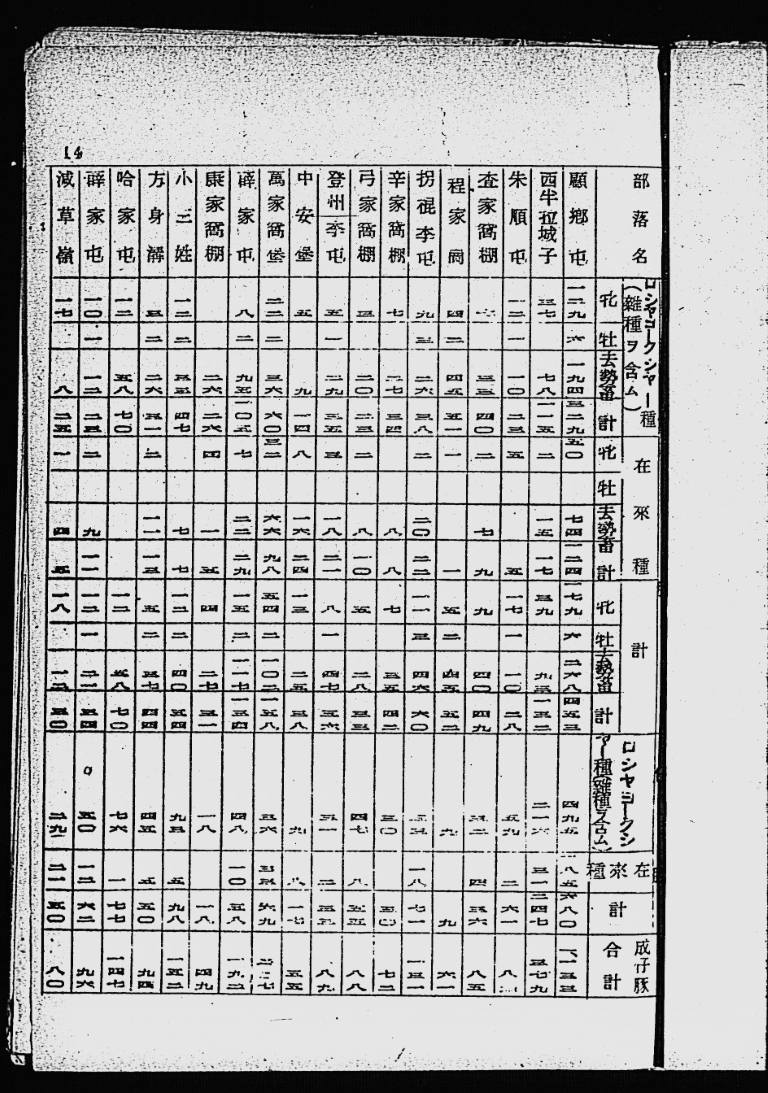 14
部落名 ロシヤヨークシヤー種(雜種ヲ含ム) 在來種 計 ロシヤヨークシヤー種(雜種ヲ含ム) 在來種 計 成仔豚合計
牝 牡 去勢畜 計 牝 牡 去勢畜 計 牝 牡 去勢畜 計
顧鄕屯 一二九 六 一九四 三二九 五〇 七四 一二四 一七九 六 二六八 四五三 四九五 一八五 六八〇 一一三三
西半拉城子 三七 七八 一一五 二 一五 一七 三九 九三 一三二 二一六 三一 二四七 三七九
朱順屯 一二 一 一〇 二三 五 五 一七 一 一〇 二八 五九 二 六一 八
査家窩棚 七 三三 四〇 二 七 九 九 四〇 四九 三二 四 三六 八五
程家岡 四 二 四五 五一 一 一 五 二 四五 五二 九 九 六一
拐棍李屯 九 三 二六 三八 二 二〇 二二 一一 三 四六 六〇 五三 一八 七一 一三一
辛家窩棚 七 二七 三四 八 八 七 三五 四二 三〇 三〇 七二
弓家窩棚 三 二〇 二三 二 八 一〇 五 二八 三三 四七 八 五五 八八
登州李屯 五 一 二九 三五 三 一八 二一 八 一 四七 五六 三一 二 三三 八九
中安堡 五 九 一四 八 一六 二四 一三 二五 三八 九 八 一七 五五
萬家窩堡 二二 二 三六 六〇 三二 六六 九八 五四 二 一〇二 一五八 三六 三三 六九 二二七
薛家屯 八 二 九五 一〇五 七 二二 二九 一五 二 一一七 一三四 四八 一〇 五八 一九二
康家窩棚 二六 二六 四 一 五 四 二七 三一 一八 一八 四九
小三姓 一二 二 三三 四七 七 七 一二 二 四〇 五四 九三 五 九八 一五二
方身溝 三 二 二六 三一 二 一一 一三 五 二 三七 四四 四五 五 五〇 九四
哈家屯 一二 五八 七〇 一二 五八 七〇 七六 一 七七 一四七
薛家屯 一〇 一 一二 二三 二 九 一一 一二 一 二一 三四 五〇 一二 六二 九六
減草嶺 一七 八 二五 一 四 五 一八 一二 三〇 二九 二一 五〇 八〇